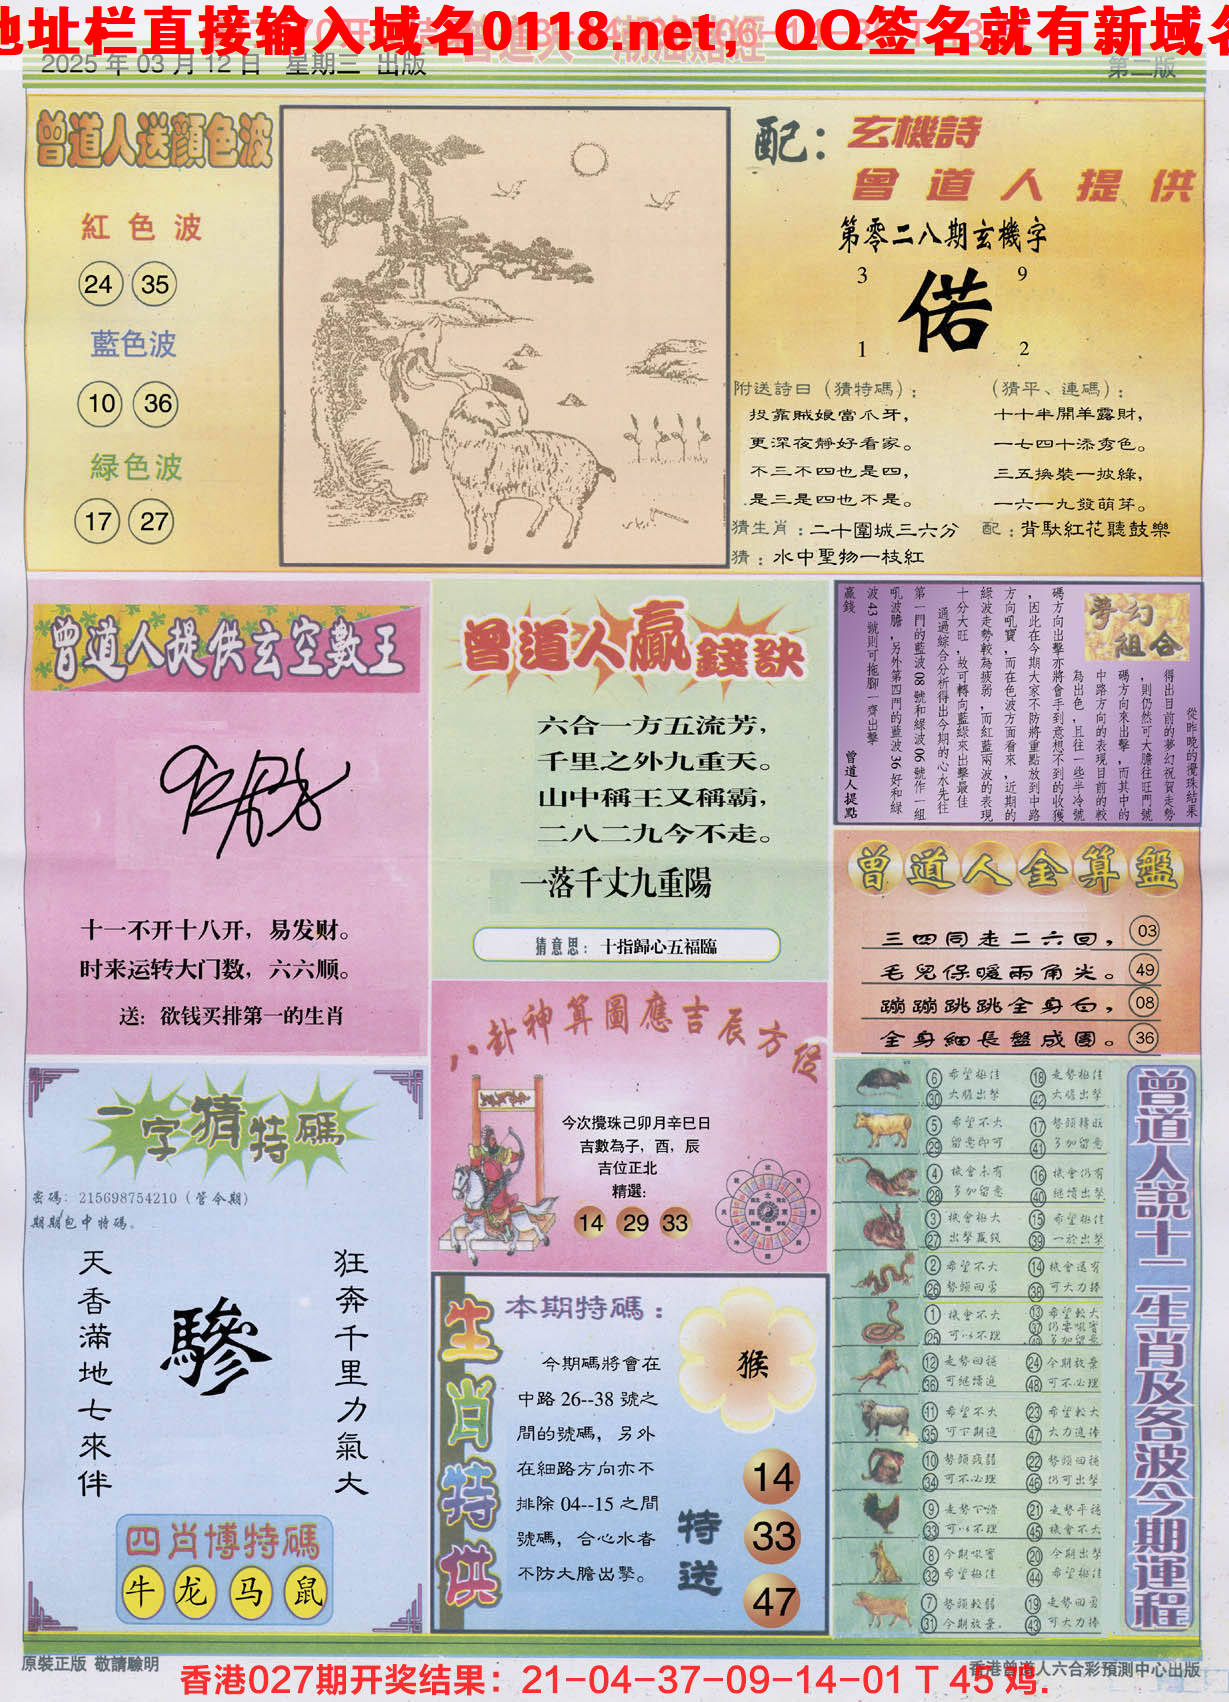 地址栏直接输入域名0118.net，QQ签名就有新域名
2025 年 03 月 12 日　星期三　出版
第二版
曾道人送顏色波
紅色波
24 35
藍色波
10 36
緑色波
17 27
配：玄機詩
曾道人提供
第零二八期玄機字
3 9
偌
1 2
附送詩曰（猜特碼）：
投靠賊娘當爪牙，
更深夜靜好看家。
不三不四也是四，
是三是四也不是。
（猜平、連碼）：
十十半開羊露財，
一七四十添秀色。
三五换裝一披綠，
一六一九發萌芽。
猜生肖：二十圍城三六分
配：背馱紅花聽鼓樂
猜：水中聖物一枝紅
曾道人提供玄空數王
十一不开十八开，易发财。
时来运转大门数，六六顺。
送：欲钱买排第一的生肖
曾道人贏錢訣
六合一方五流芳，
千里之外九重天。
山中稱王又稱霸，
二八二九今不走。
一落千丈九重陽
猜意思：十指歸心五福臨
夢幻組合
從昨晚的攪珠結果
得出目前的夢幻祝賀走勢
，則仍然可大膽往旺門號
碼方向來出擊，而其中的
中路方向的表現目前的較
為出色，且往一些半冷號
碼方向出擊亦將會手到意想不到的收獲
，因此在今期大家不防將重點放到中路
方向吼寶，而在色波方面看來，近期的
綠波走勢較為疲弱，而紅藍兩波的表現
十分大旺，故可轉向藍綠來出擊最佳
通過綜合分析得出今期的心水先往
第一門的藍波 08 號和綠波 06 號作一組
吼波膽，另外第四門的藍波 36 好和綠
波 43 號則可拖腳一齊出擊
贏錢
曾道人提點
曾道人金算盤
三四同走二六回， 03
毛兒保暖兩角尖。 49
蹦蹦跳跳全身白， 08
全身細長盤成團。 36
八卦神算圖應吉辰方位
今次攪珠己卯月辛巳日
吉數為子，酉，辰
吉位正北
精選：
14 29 33
一字猜特碼
密碼：215698754210（管令期）
期期包中特碼。
天香滿地七來伴
驂
狂奔千里力氣大
四肖博特碼
牛 龙 马 鼠
生肖特供
本期特碼：
今期碼將會在
中路 26--38 號之
間的號碼，另外
在細路方向亦不
排除 04--15 之間
號碼，合心水者
不防大膽出擊。
猴
特送
14
33
47
曾道人說十二生肖及各波今期運程
6 希望極佳 18 走勢極佳
30 大膽出擊 42 大膽出擊
5 希望不大 17 勢頭轉旺
29 留意即可 41 多加留意
4 機會未有 16 機會仍有
28 多加留意 40 繼續出擊
3 機會極大 15 希望極佳
27 出擊贏錢 39 一於出擊
2 希望不大 14 機會還有
26 勢頭回勇 38 可大力捧
1 機會不大 13 希望較大
25 可以不理 37 仍要吼實
49 多加留意
12 走勢回穩 24 今期放棄
36 可繼續追 48 可不必理
11 希望不大 23 希望較大
35 可下期追 47 大力追捧
10 勢頭疲弱 22 勢頭回穩
34 可不必理 46 仍可出擊
9 走勢下滑 21 走勢平穩
33 可以不理 45 機會不大
8 今期吼實 20 今期出擊
32 希望極佳 44 希望極佳
7 勢頭較弱 19 走勢回勇
31 今期放棄。 43 可大力捧
原裝正版 敬請驗明
香港曾道人六合彩預測中心出版
香港027期开奖结果：21-04-37-09-14-01 T 45 鸡.